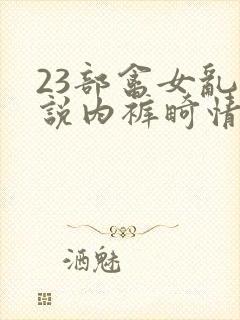 23部畜女亂
説内裤畸情
洒魅